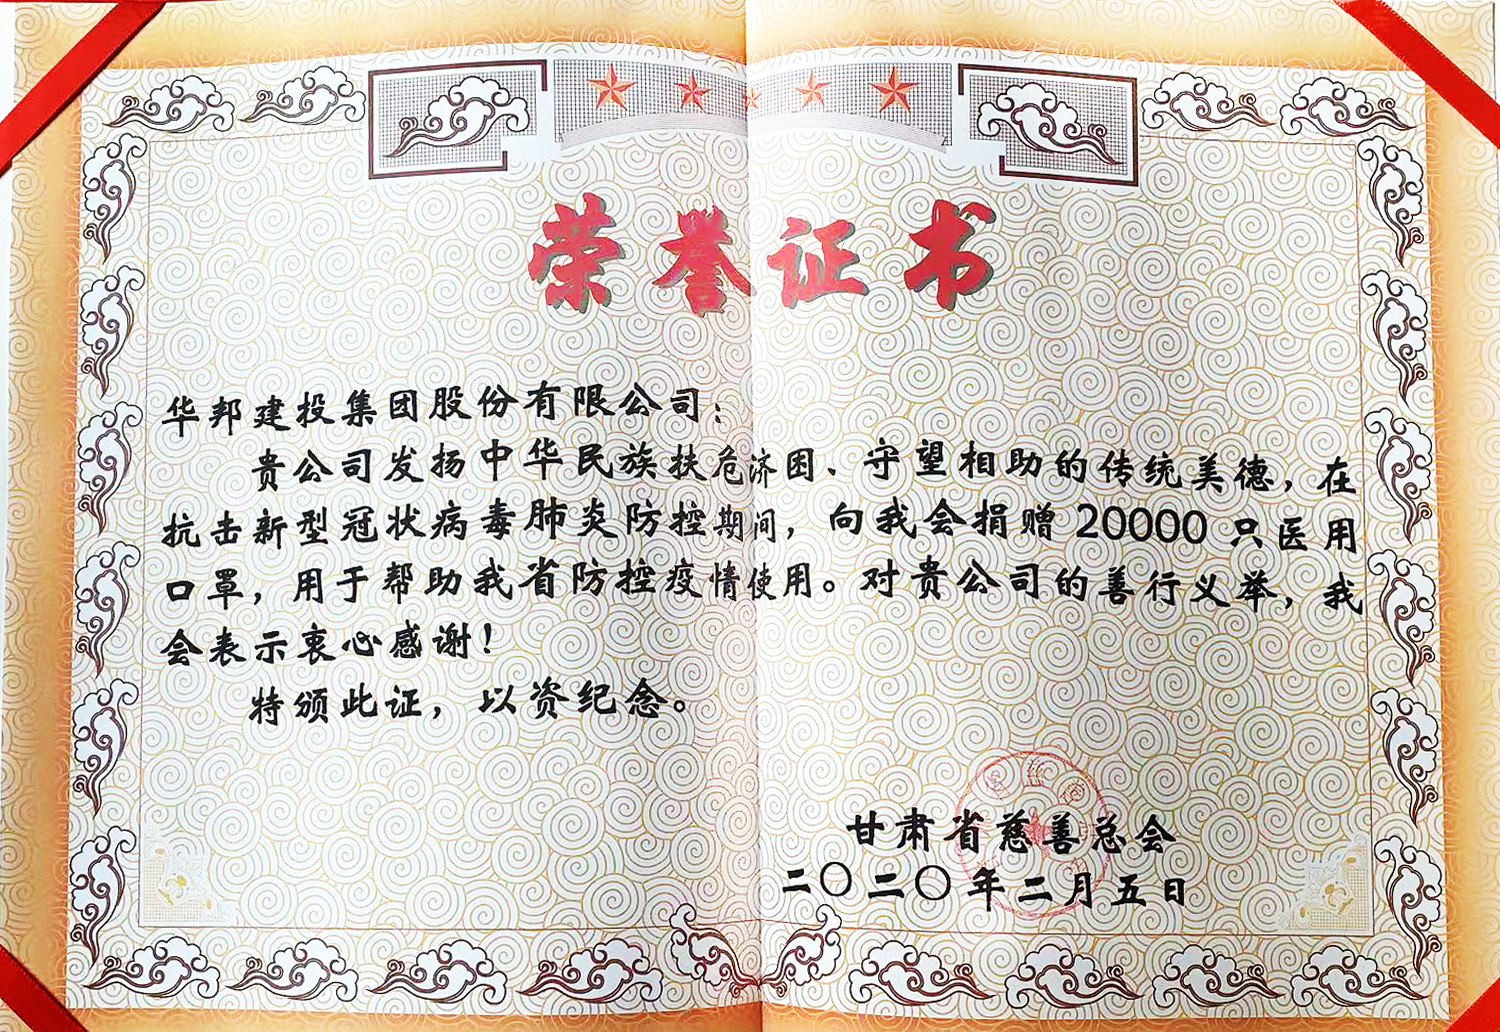 荣誉证书
华邦建投集团股份有限公司：
贵公司发扬中华民族扶危济困、守望相助的传统美德，在
抗击新型冠状病毒肺炎防控期间，向我会捐赠20000只医用
口罩，用于帮助我省防控疫情使用。对贵公司的善行义举，我
会表示衷心感谢！
特颁此证，以资纪念。
甘肃省慈善总会
二〇二〇年二月五日